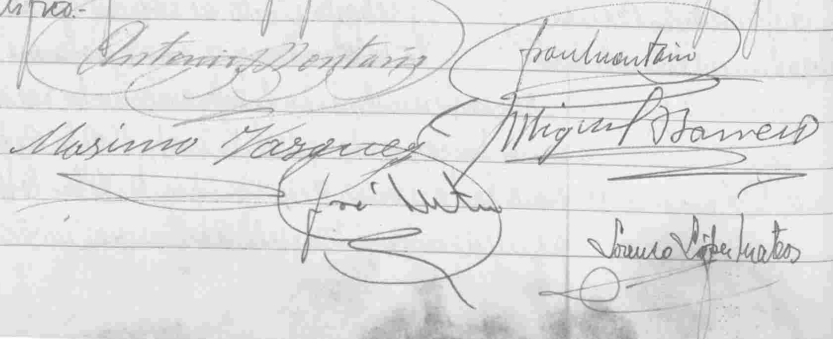 Antonio Montaño
Juan Montaño
Masimo Vazquez
Miguel Barrero
José
Lorenzo López Mateos